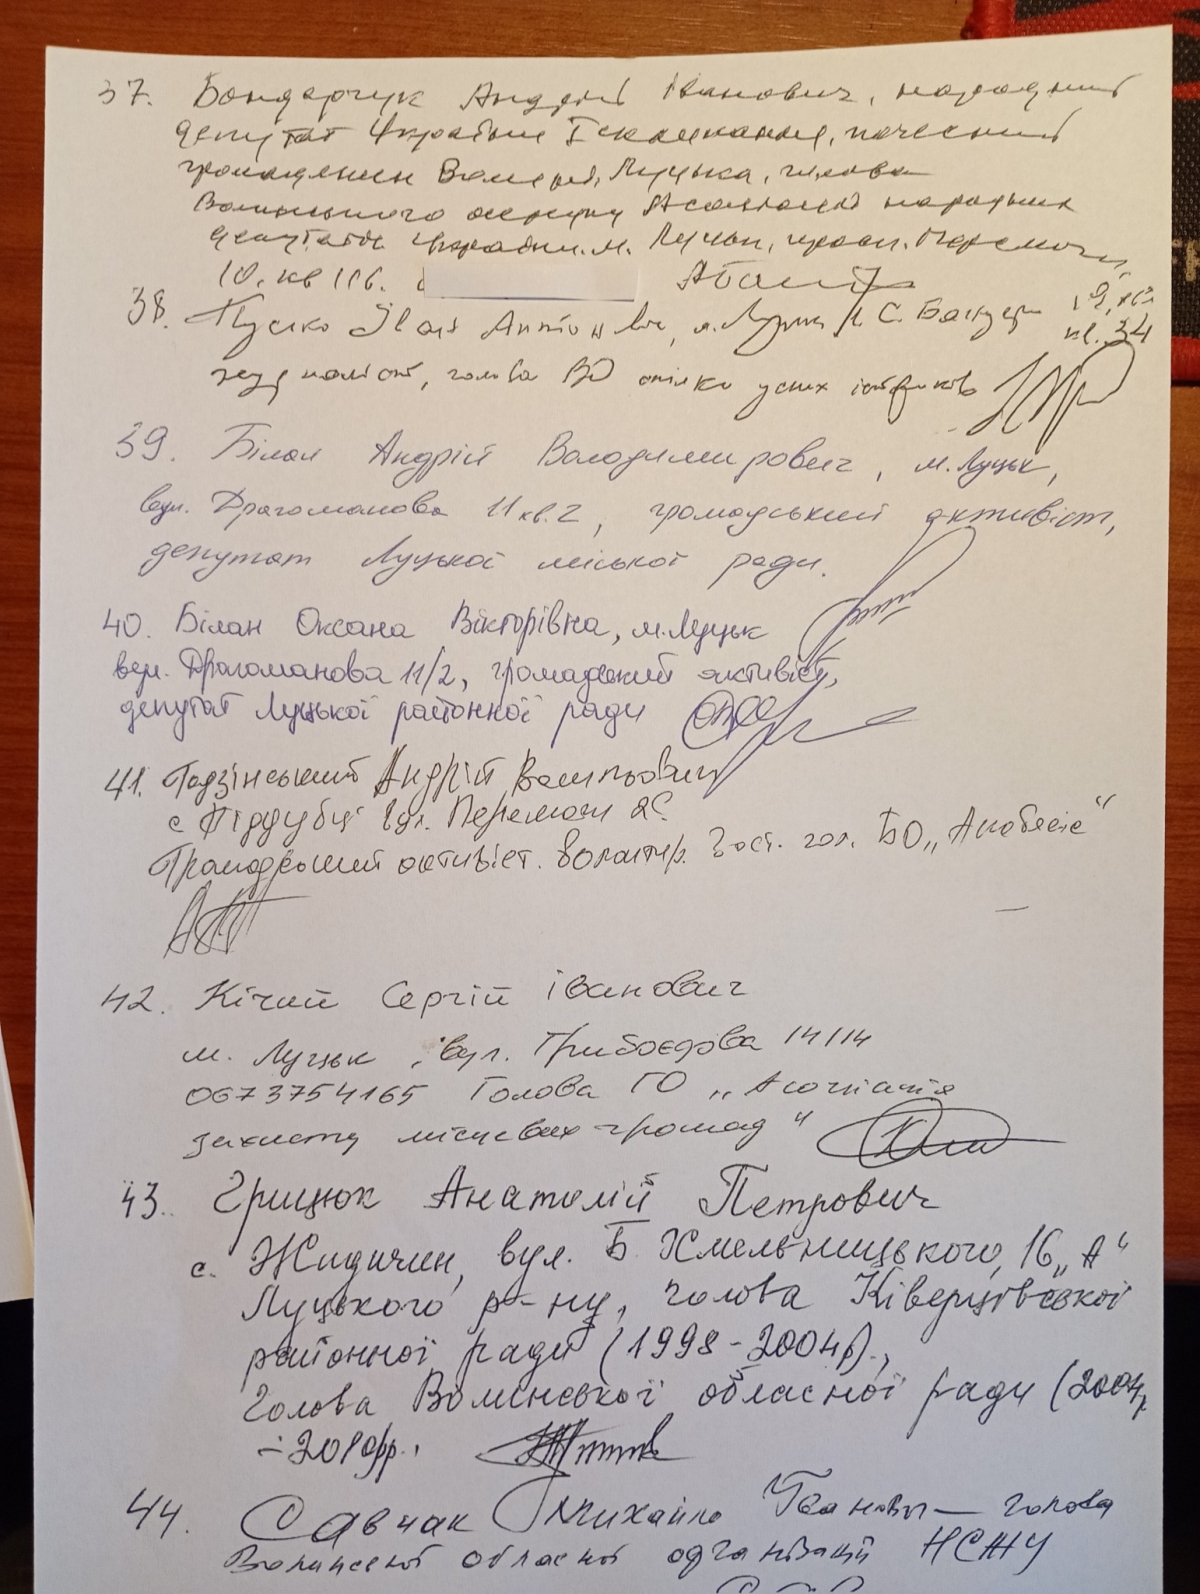 37. Бондарчук Андрій Іванович, народний
депутат України І скликання, почесний
громадянин Волині, Луцька, голова
Волинського осередку Асоціації народних
депутатів України. м. Луцьк, просп. Перемоги,
10. кв 116.
38. Пуско Іван Антонович, м. Луцьк, С. Бандери
кв. 34
журналіст, голова ВО спілки
39. Білан Андрій Володимирович, м. Луцьк,
вул. Драгоманова 11 кв. 2, громадський активіст,
депутат Луцької міської ради.
40. Білан Оксана Вікторівна, м. Луцьк
вул. Драгоманова 11/2, громадський активіст,
депутат Луцької районної ради
41. Годзінський Андрій Васильович
с Піддубці вул. Перемоги
Громадський активіст. волонтер. Заст. гол. БО „
42. Кічий Сергій Іванович
м. Луцьк, вул. Грибоєдова 14/14
0673754165 Голова ГО „Асоціація
захисту місцевих громад"
43. Грицюк Анатолій Петрович
с. Жидичин, вул. Б. Хмельницького, 16 „А"
Луцького р-ну, голова Ківерцівської
районної ради (1998-2004р).,
Голова Волинської обласної ради (2004р.
-2010рр.
44. Савчак Михайло Іванович — голова
Волинської обласної організації НСЖУ